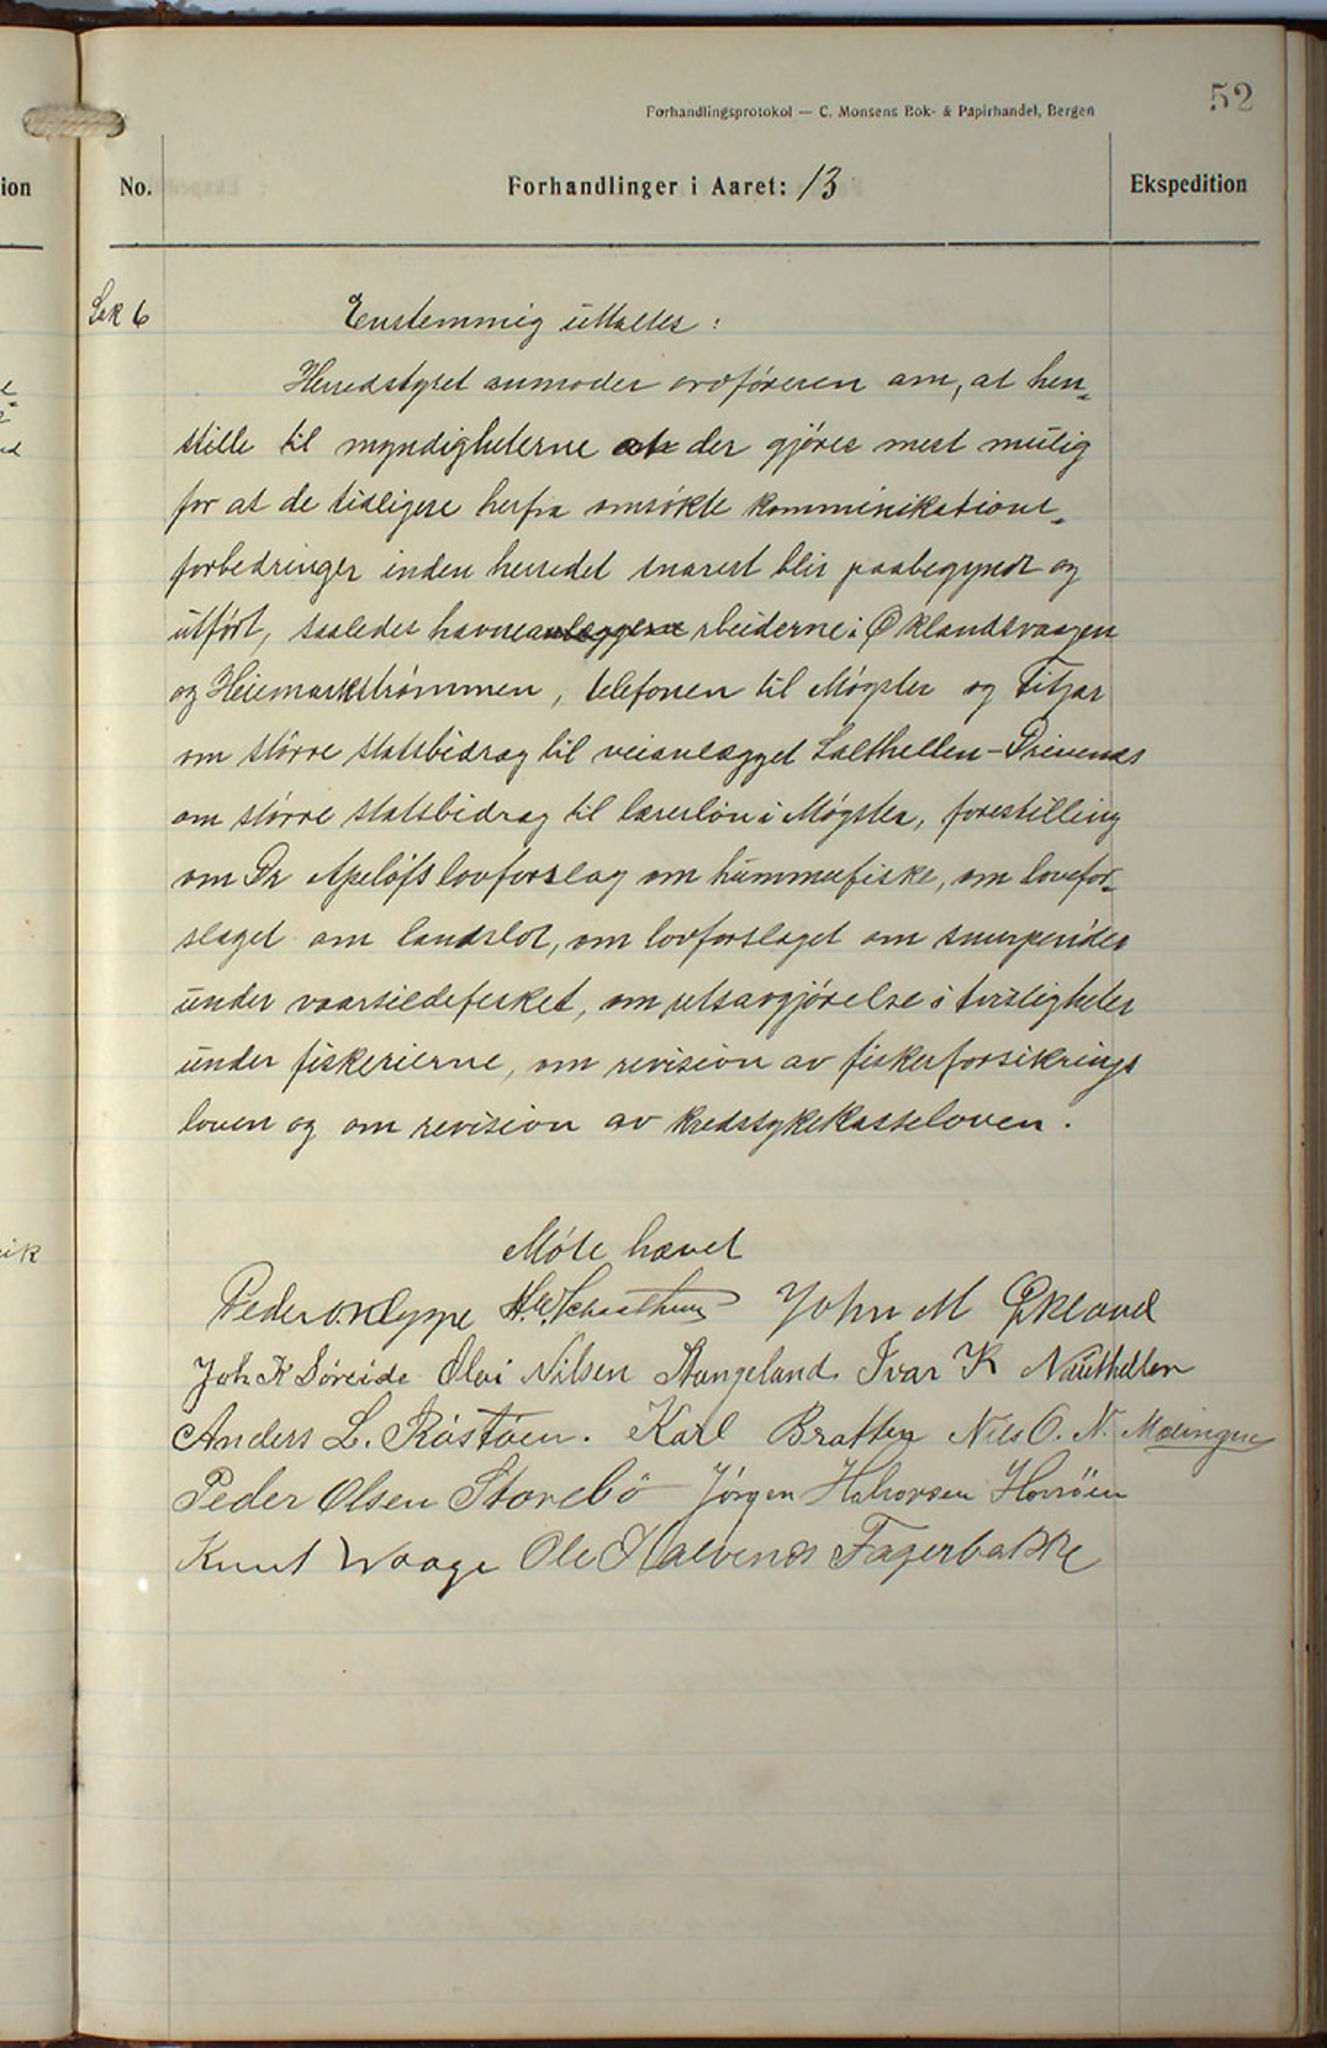 52
Forhandlingsprotokol — C. Monsens Bok- & Papirhandel, Bergen
ion
No.
Forhandlinger i Aaret: 13
Ekspedition
Sak 6
Enstemmig uttaltes:
Herredstyret anmoder ordføreren om, at hen-
stille til myndigheterne at der gjøres mest mulig
for at de tidligere herfra omsøkte kommunikations-
forbedringer inden herredet snarest blir paabegyndt og
utført, saaledes havneanlæggene arbeiderne i Øklandsvaagen
og Heiemarkstrømmen, telefonen til Møgster og Fitjar
om større statsbidrag til veianlægget Salthellen-Drivenes
om større statsbidrag til lærerløn i Møgster, forestilling
om Dr Apeløfs lovforslag om hummerfiske, om lovefor-
slaget om landslot, om lovforslaget om snurpenøter
under vaarsildefisket, om retsavgjørelse i tvistigheter
under fiskerierne, om revision av fiskerforsikrings
loven og om revision av kredssykekasseloven.
Møte hævet
Peder O. Klyppe H. W. Schaathun John M Økland
Joh K Søreide Olai Nilsen Stangeland Ivar K Nauthellen
Anders L. Røstøen. Karl Bratten Nils O. N. Møvingen
Peder Olsen Storebø Jørgen Halvorsen Horsøen
Knut Waage Ole Halvends Fagerbakke
ik